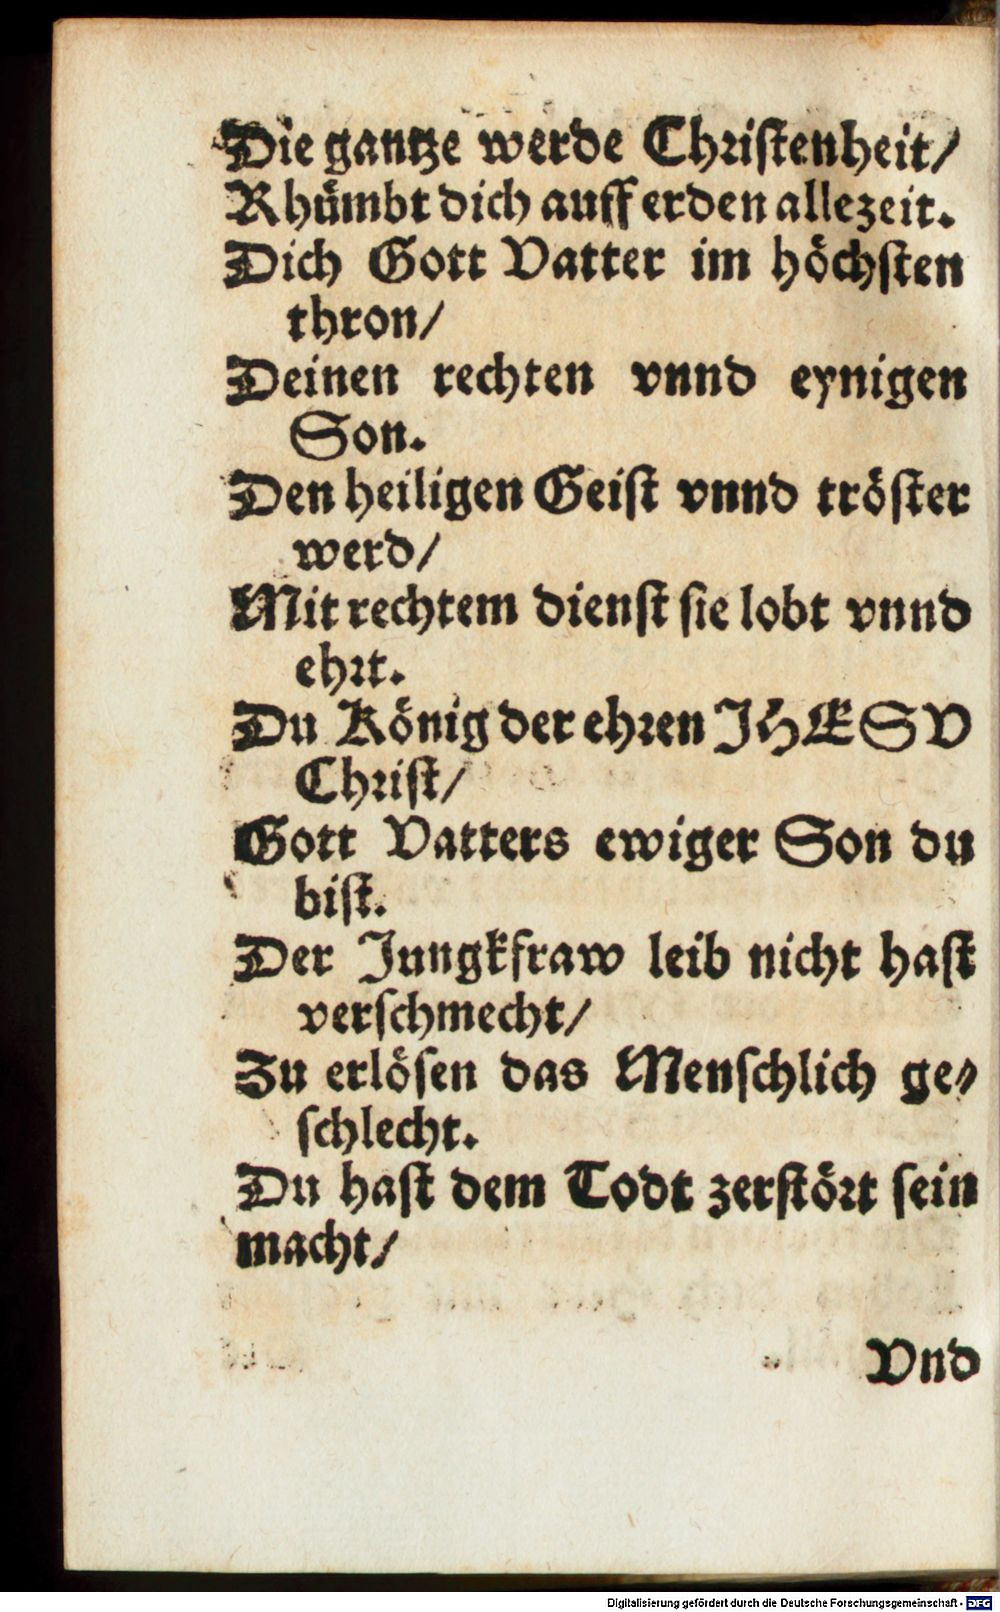 Die gantze werde Christenheit/
Rhuͤmbt dich auff erden allezeit.
Dich Gott Vatter im hoͤchsten
thron/
Deinen rechten vnnd eynigen
Son.
Den heiligen Geist vnnd troͤster
werd/
Mit rechtem dienst sie lobt vnnd
ehrt.
Du Koͤnig der ehren JHESV
Christ/
Gott Vatters ewiger Son du
bist.
Der Jungkfraw leib nicht hast
verschmecht/
Zu erloͤsen das Menschlich ge⸗
schlecht.
Du hast dem Todt zerstoͤrt sein
macht/
Vnd
Digitalisierung gefördert durch die Deutsche Forschungsgemeinschaft - DFG